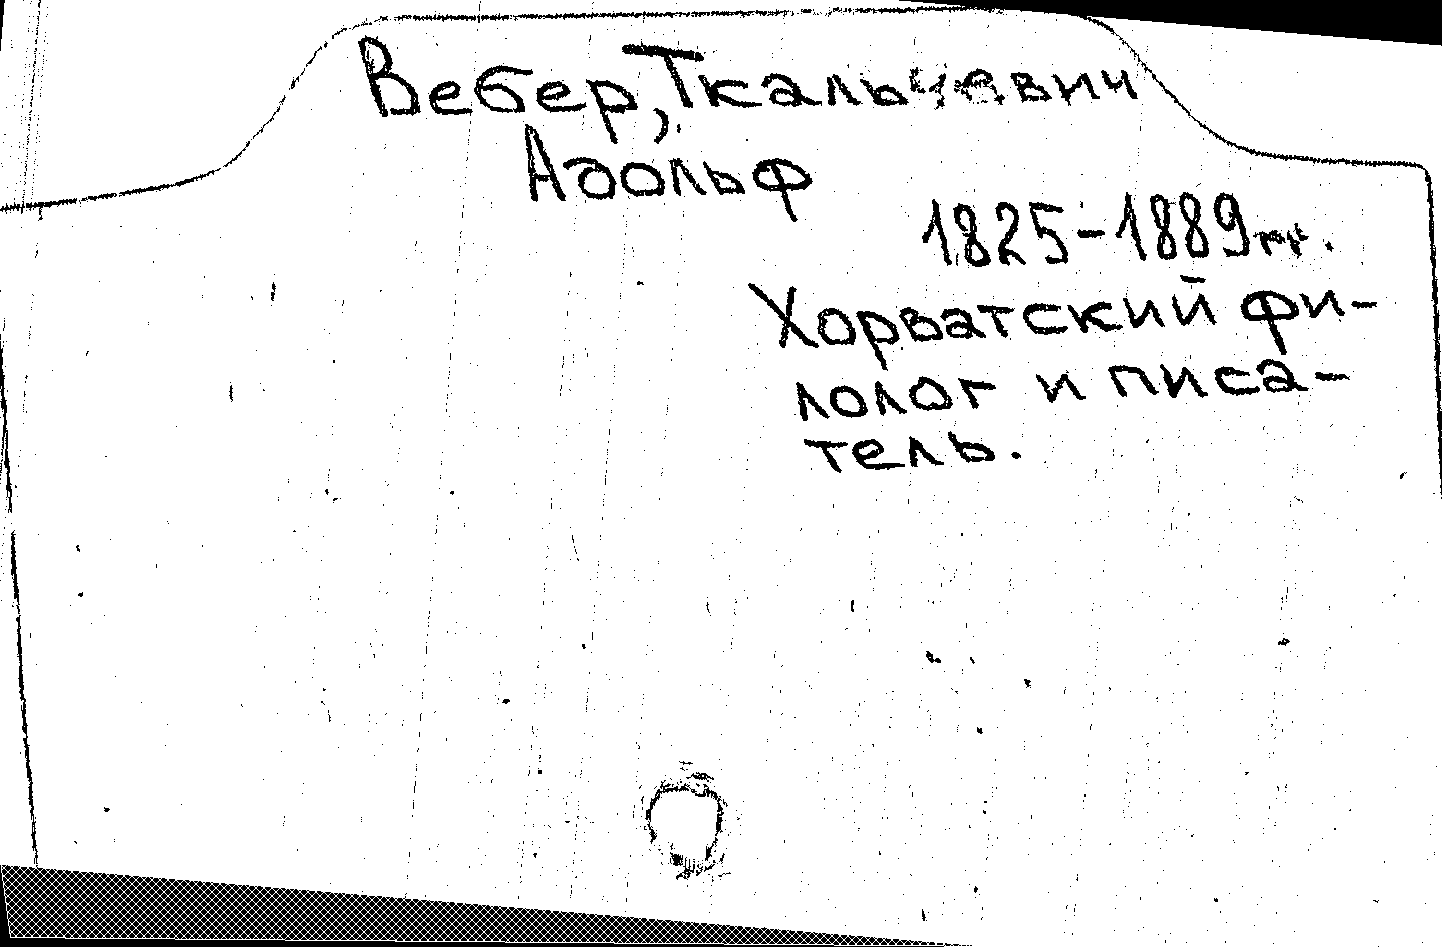 Вебер, Ткальчевич
Адольф
1825-1889 гг.
Хорватский фи-
лолог и писа-
тель.